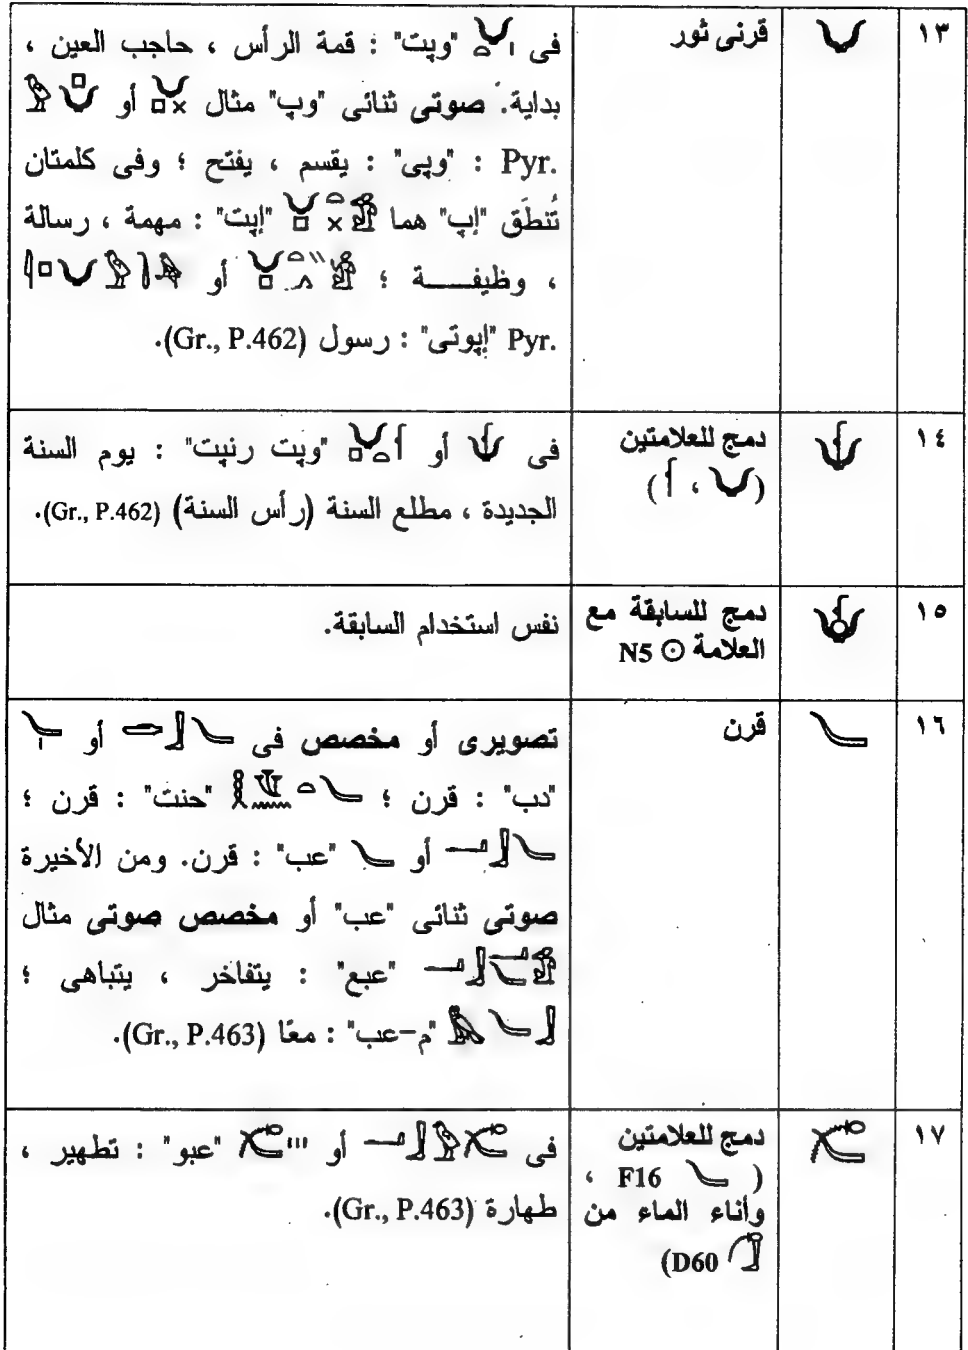 ١٣
قرنى ثور
فى "وپت" : قمة الرأس ، حاجب العين ،
بداية. صوتى ثنائى "وپ" مثال أو
Pyr. : "وپى" : يقسم ، يفتح ؛ وفى كلمتان
تُنطَق "إپ" هما "إپت" : مهمة ، رسالة
، وظيفة ؛ أو
Pyr. "إپوتى" : رسول (Gr., P.462).
١٤
دمج للعلامتين
( ، )
فى أو "وپت رنپت" : يوم السنة
الجديدة ، مطلع السنة (رأس السنة) (Gr., P.462).
١٥
دمج للسابقة مع
العلامة N5
نفس استخدام السابقة.
١٦
قرن
تصويرى أو مخصص فى أو
"دب" : قرن ؛ "حنت" : قرن ؛
أو "عب" : قرن. ومن الأخيرة
صوتى ثنائى "عب" أو مخصص صوتى مثال
"عبع" : يتفاخر ، يتباهى ؛
"م-عب" : معًا (Gr., P.463).
١٧
دمج للعلامتين
( F16 ،
وأناء الماء من
D60)
فى أو "عبو" : تطهير ،
طهارة (Gr., P.463).